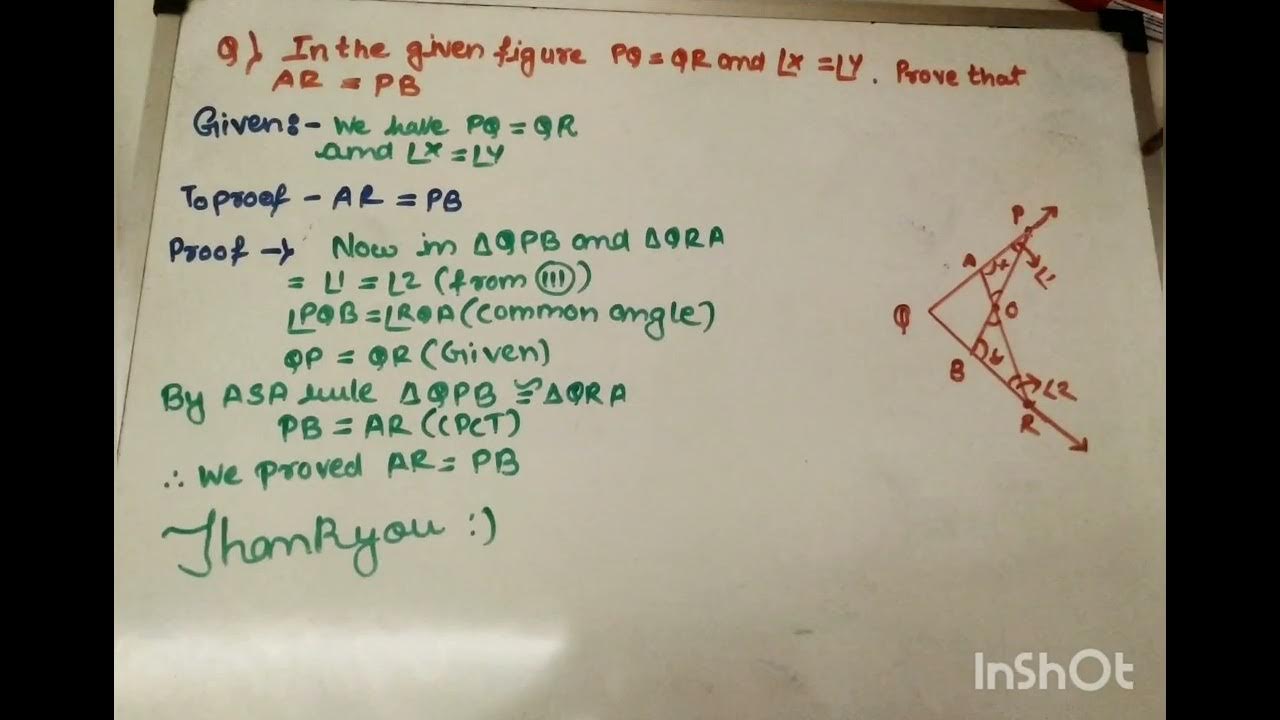 Q) In the given figure PQ = QR and ∠x = ∠y. Prove that
AR = PB
Given:- We have PQ = QR
and ∠x = ∠y
To proof - AR = PB
Proof → Now in ΔQPB and ΔQRA
= ∠1 = ∠2 (from III)
∠PQB = ∠RQA (common angle)
QP = QR (Given)
By ASA rule ΔQPB ≅ ΔQRA
PB = AR (CPCT)
∴ We proved AR = PB
Thankyou :)
P
A
x
∠1
Q
O
B
y
∠2
R
InShOt